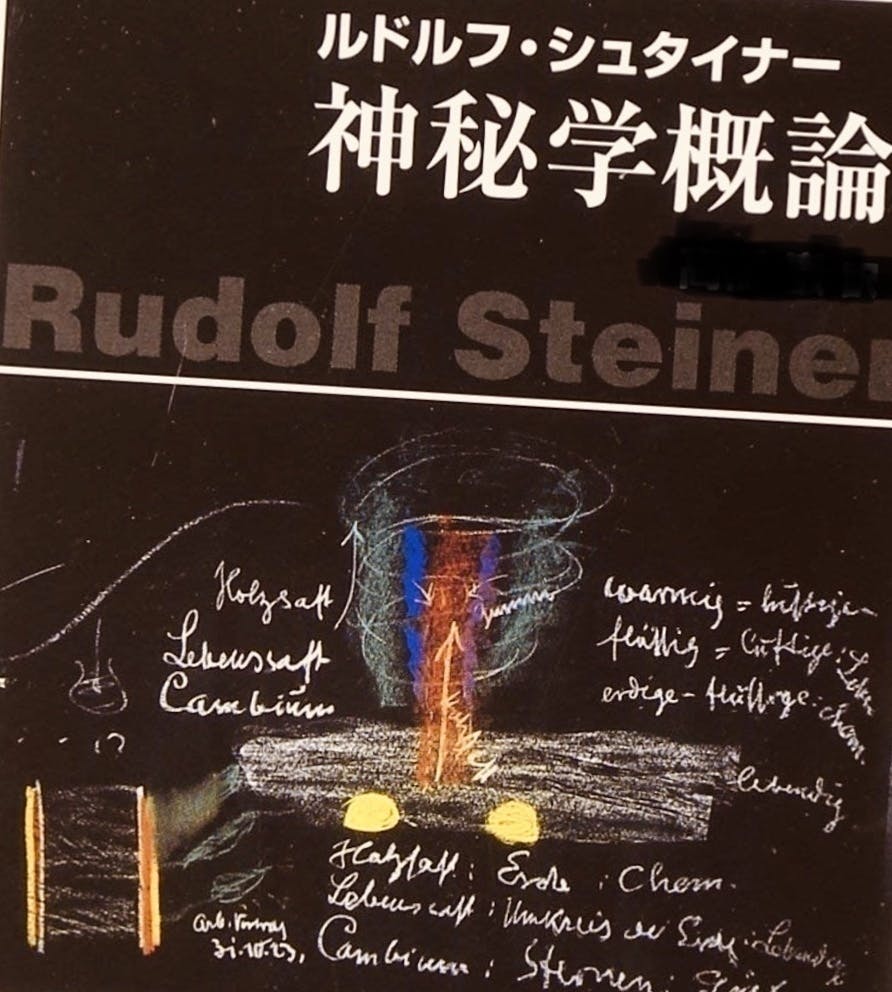 ルドルフ・シュタイナー
神秘学概論
Rudolf Steiner
Holzsaft
Lebenssaft
Cambium
warmig = luftige-
flüssig = luftige:
erdige - flüssige: chem.
lebendig
Holzsaft: Erde : Chem.
Lebenssaft: Umkreis der Erde:
31.10.23,
Cambium: Sternen: